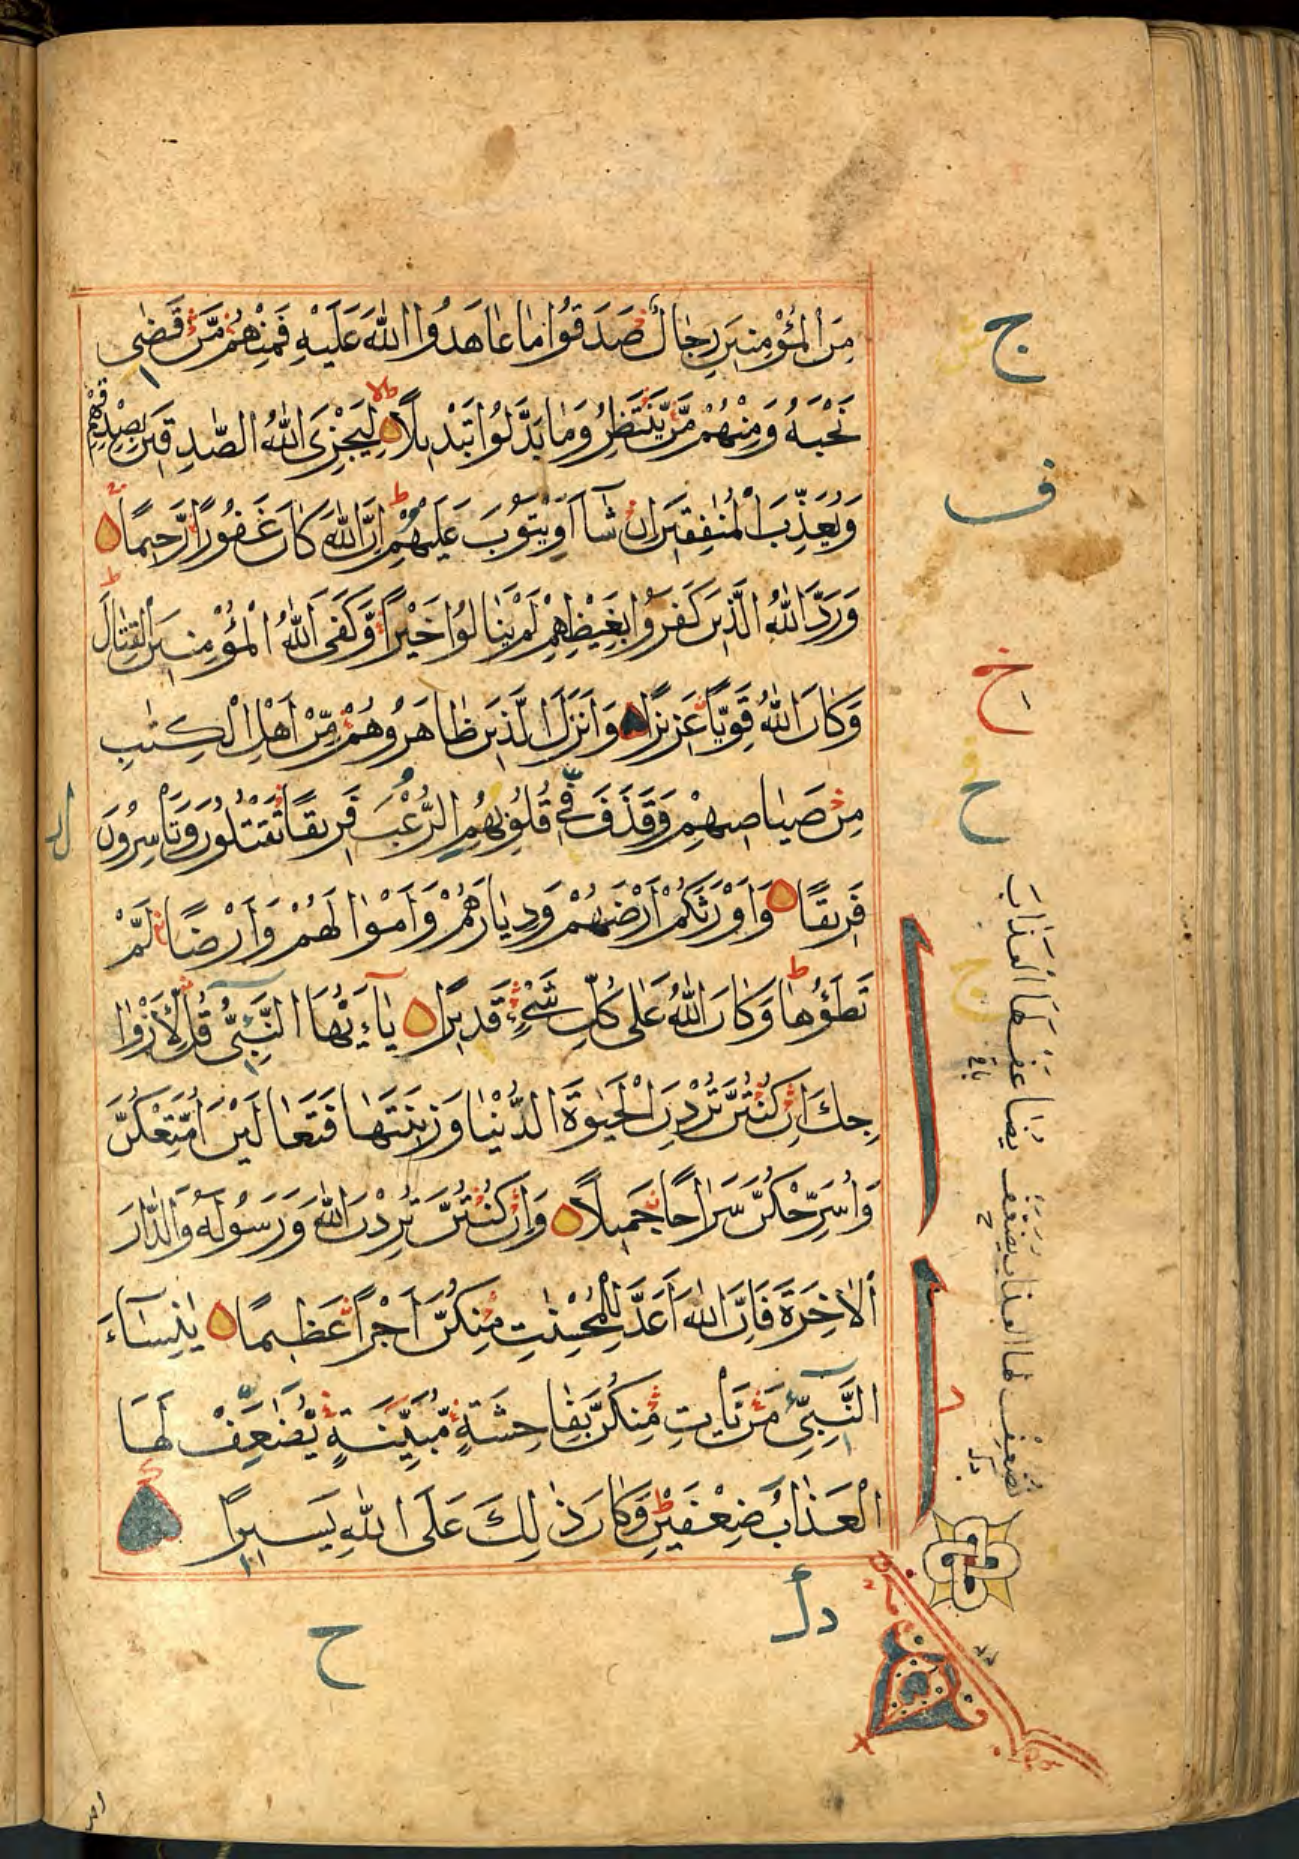 مِنَ الْمُؤْمِنِينَ رِجَالٌ صَدَقُوا مَا عَاهَدُوا اللّٰهَ عَلَيْهِ فَمِنْهُمْ مَّنْ قَضٰى
نَحْبَهُ وَمِنْهُمْ مَّنْ يَّنْتَظِرُ وَمَا بَدَّلُوا تَبْدِيلًا لِيَجْزِىَ اللّٰهُ الصّٰدِقِينَ بِصِدْقِهِمْ
وَيُعَذِّبَ الْمُنٰفِقِينَ اِنْ شَآءَ اَوْ يَتُوبَ عَلَيْهِمْ اِنَّ اللّٰهَ كَانَ غَفُورًا رَّحِيمًا
وَرَدَّ اللّٰهُ الَّذِينَ كَفَرُوا بِغَيْظِهِمْ لَمْ يَنَالُوا خَيْرًا وَّكَفَى اللّٰهُ الْمُؤْمِنِينَ الْقِتَالَ
وَكَانَ اللّٰهُ قَوِيًّا عَزِيزًا وَاَنْزَلَ الَّذِينَ ظَاهَرُوهُمْ مِّنْ اَهْلِ الْكِتٰبِ
مِنْ صَيَاصِيهِمْ وَقَذَفَ فِى قُلُوبِهِمُ الرُّعْبَ فَرِيقًا تَقْتُلُونَ وَتَأْسِرُونَ
فَرِيقًا وَاَوْرَثَكُمْ اَرْضَهُمْ وَدِيَارَهُمْ وَاَمْوَالَهُمْ وَاَرْضًا لَّمْ
تَطَؤُهَا وَكَانَ اللّٰهُ عَلٰى كُلِّ شَىْءٍ قَدِيرًا يَآءَيُّهَا النَّبِىُّ قُلْ لِّاَزْوَا
جِكَ اِنْ كُنْتُنَّ تُرِدْنَ الْحَيٰوةَ الدُّنْيَا وَزِينَتَهَا فَتَعَالَيْنَ اُمَتِّعْكُنَّ
وَاُسَرِّحْكُنَّ سَرَاحًا جَمِيلًا وَاِنْ كُنْتُنَّ تُرِدْنَ اللّٰهَ وَرَسُولَهُ وَالدَّارَ
الْاٰخِرَةَ فَاِنَّ اللّٰهَ اَعَدَّ لِلْمُحْسِنٰتِ مِنْكُنَّ اَجْرًا عَظِيمًا يٰنِسَآءَ
النَّبِىِّ مَنْ يَّأْتِ مِنْكُنَّ بِفَاحِشَةٍ مُّبَيِّنَةٍ يُّضٰعَفْ لَهَا
الْعَذَابُ ضِعْفَيْنِ وَكَانَ ذٰلِكَ عَلَى اللّٰهِ يَسِيرًا
ج
ف
خ
ح
ح